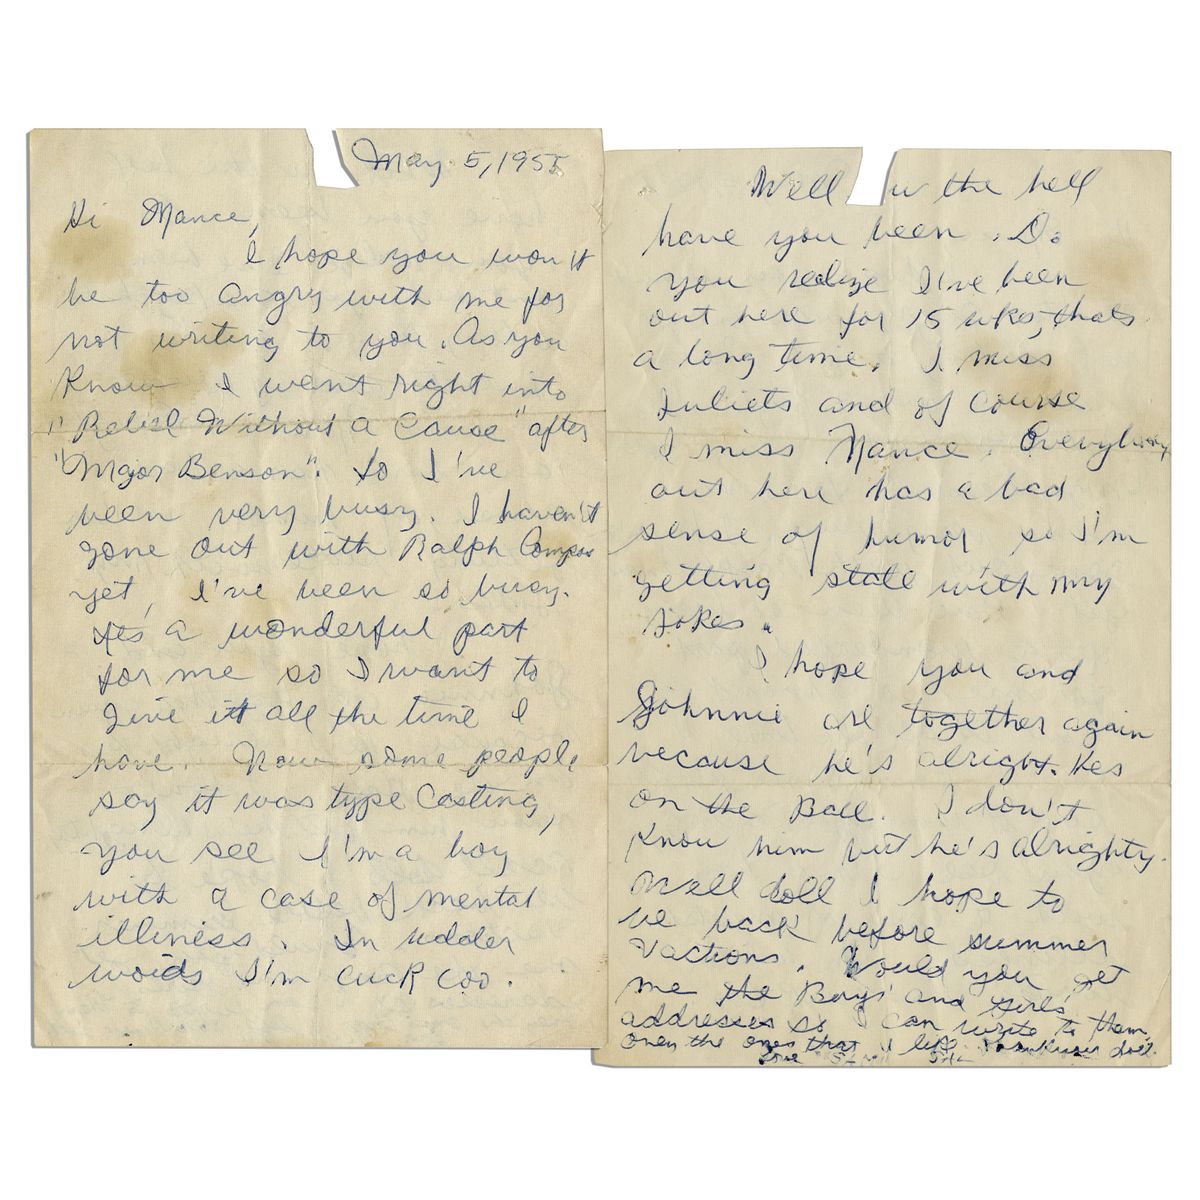 May 5, 1955
Hi Nance,
I hope you won't
be too angry with me for
not writing to you. As you
know I went right into
"Rebel Without a Cause" after
"Major Benson". So I've
been very busy. I haven't
gone out with Ralph Campos
yet, I've been so busy.
Its a wonderful part
for me so I want to
give it all the time I
have. Now some people
say it was type casting,
you see I'm a boy
with a case of mental
illness. In udder
woids I'm cuck coo.
Well w the hell
have you been. Do
you realize I've been
out here for 15 wks, thats
a long time. I miss
Juliets and of course
I miss Nance. Everybody
out here has a bad
sense of humor so I'm
getting stale with my
jokes.
I hope you and
Johnnie are together again
because he's alright. Hes
on the Ball. I don't
know him but he's alrighty.
Well doll I hope to
be back before summer
vactions. Would you get
me the Boys' and Girls'
addresses so I can write to them,
only the ones that I like. doll.
Love Sal